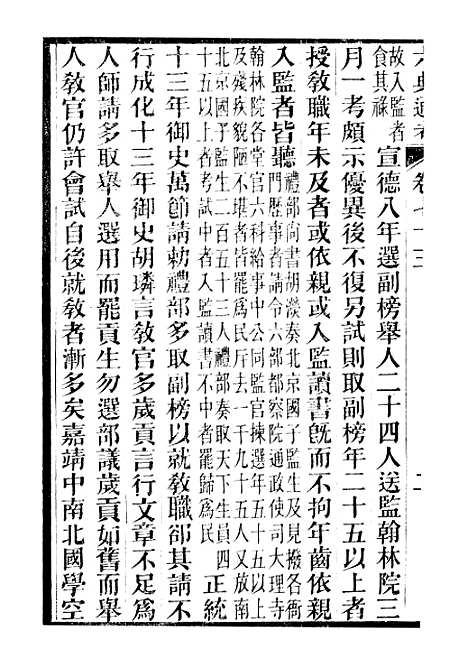 故入監者
食其祿
宣德八年選副榜舉人二十四人送監翰林院三
月一考頗示優異後不復另試則取副榜年二十五以上者
授敎職年未及者或依親或入監讀書旣而不拘年齒依親
入監者皆聽
禮部尙書胡濙奏北京國子監生及見撥各衙
門歷事者請令六部都察院通政使司大理寺
翰林院各堂官六科給事中公同監官揀選年五十五以上
及殘疾貌陋不堪者皆罷爲民斥去一千九十五人又放南
北京國子生二百五十三人禮部奏取天下生員四
十五以上者考試中者入監讀書不中者罷歸爲民
正統
十三年御史萬節請勅禮部多取副榜以就敎職郤其請不
行成化十三年御史胡璘言敎官多歲貢言行文章不足爲
人師請多取舉人選用而罷貢生勿選部議歲貢如舊而舉
人敎官仍許會試自後就敎者漸多矣嘉靖中南北國學空